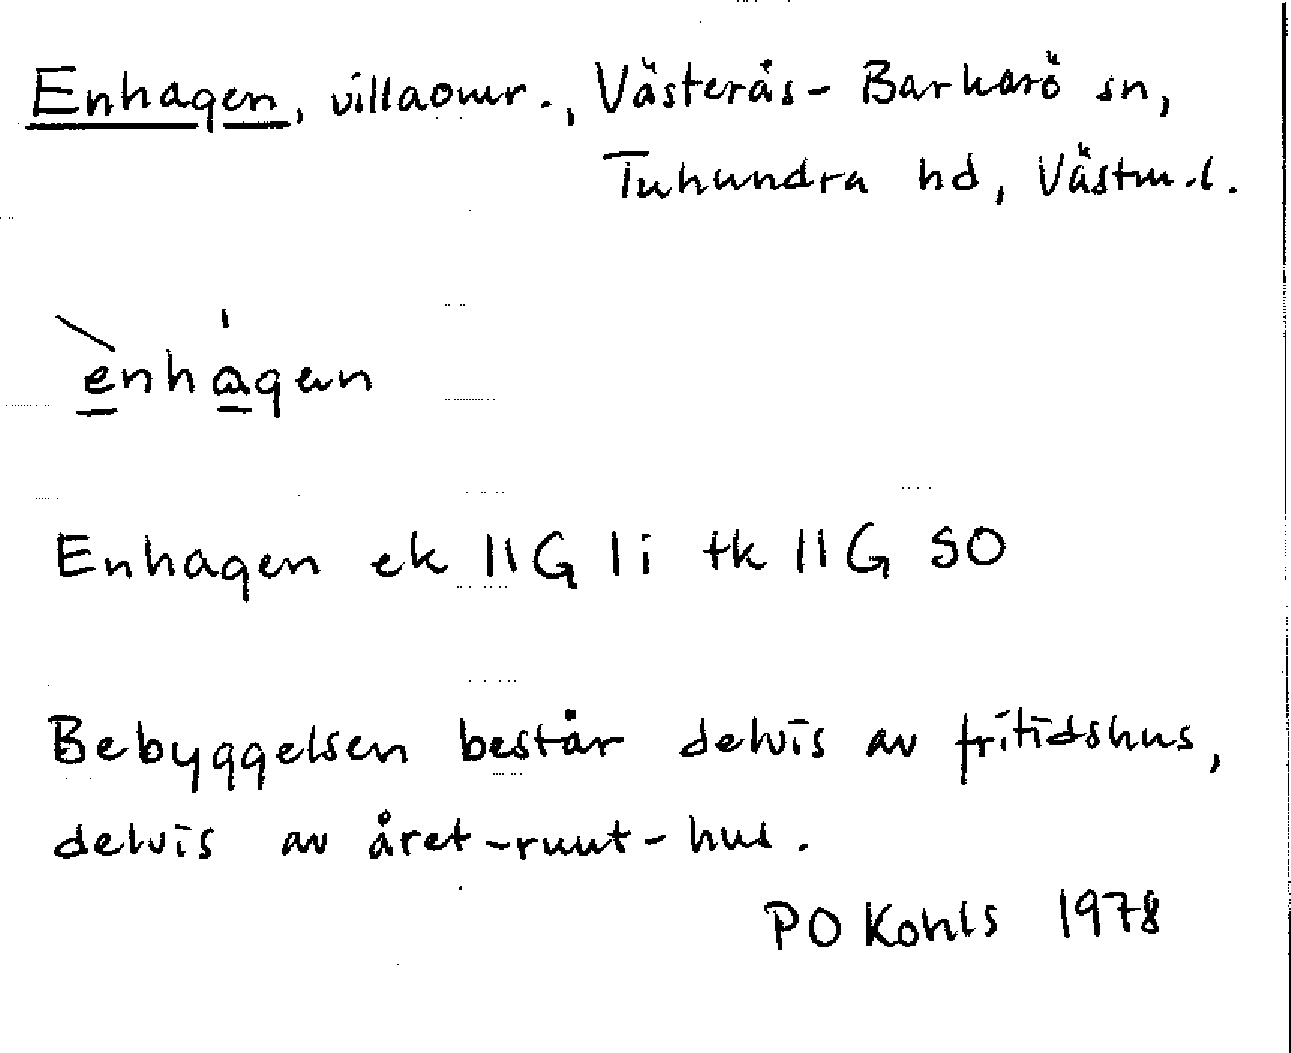 Enhagen, villaomr., Västerås-Barkarö sn,
Tuhundra hd, Västm.l.
ènhágen
Enhagen ek 11G 1i tk 11G SO
Bebyggelsen består delvis av fritidshus,
delvis av året-runt-hus.
PO Kohls 1978